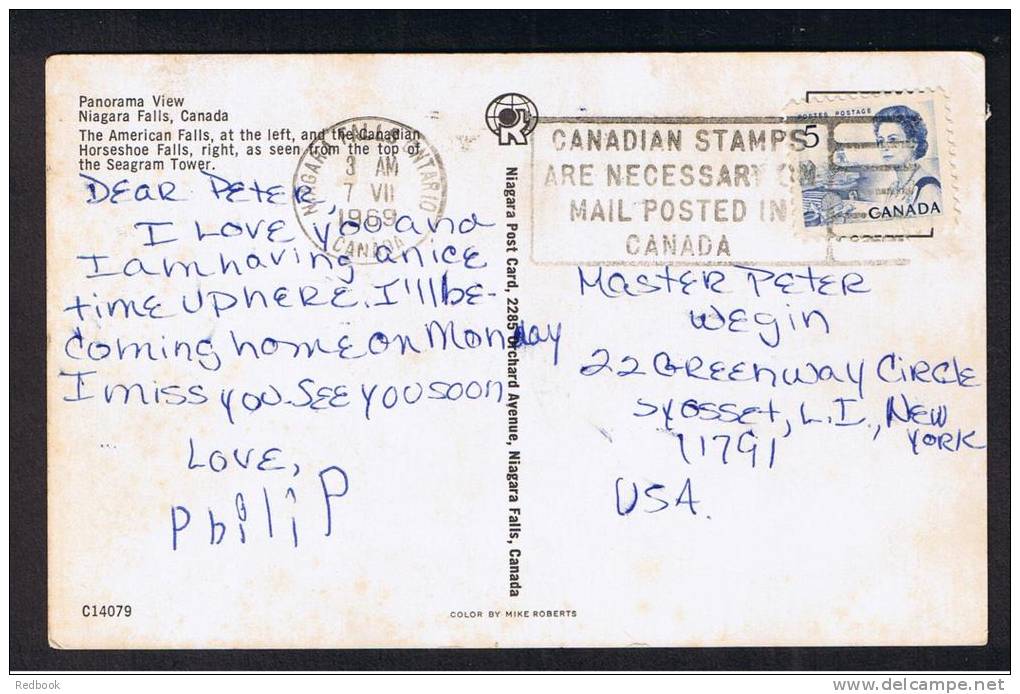 Panorama View
Niagara Falls, Canada
The American Falls, at the left, and the Canadian
Horseshoe Falls, right, as seen from the top of
the Seagram Tower.
DEAR PETER,
I LOVE you and
I am having a nice
time UP HERE. I'll be
coming home on Monday
I miss you. SEE YOU soon
LOVE,
PhiliP
C14079
NIAGARA FALLS ONTARIO
3 AM
7 VII
1969
CANADA
Niagara Post Card, 2285 Orchard Avenue, Niagara Falls, Canada
COLOR BY MIKE ROBERTS
CANADIAN STAMPS
ARE NECESSARY ON
MAIL POSTED IN
CANADA
POSTES POSTAGE
5
CANADA
MASTER PETER
wegin
22 GREENWAY CIRCLE
SYOSSET, L.I., NEW
YORK
11791
USA.
Redbook
www.delcampe.net